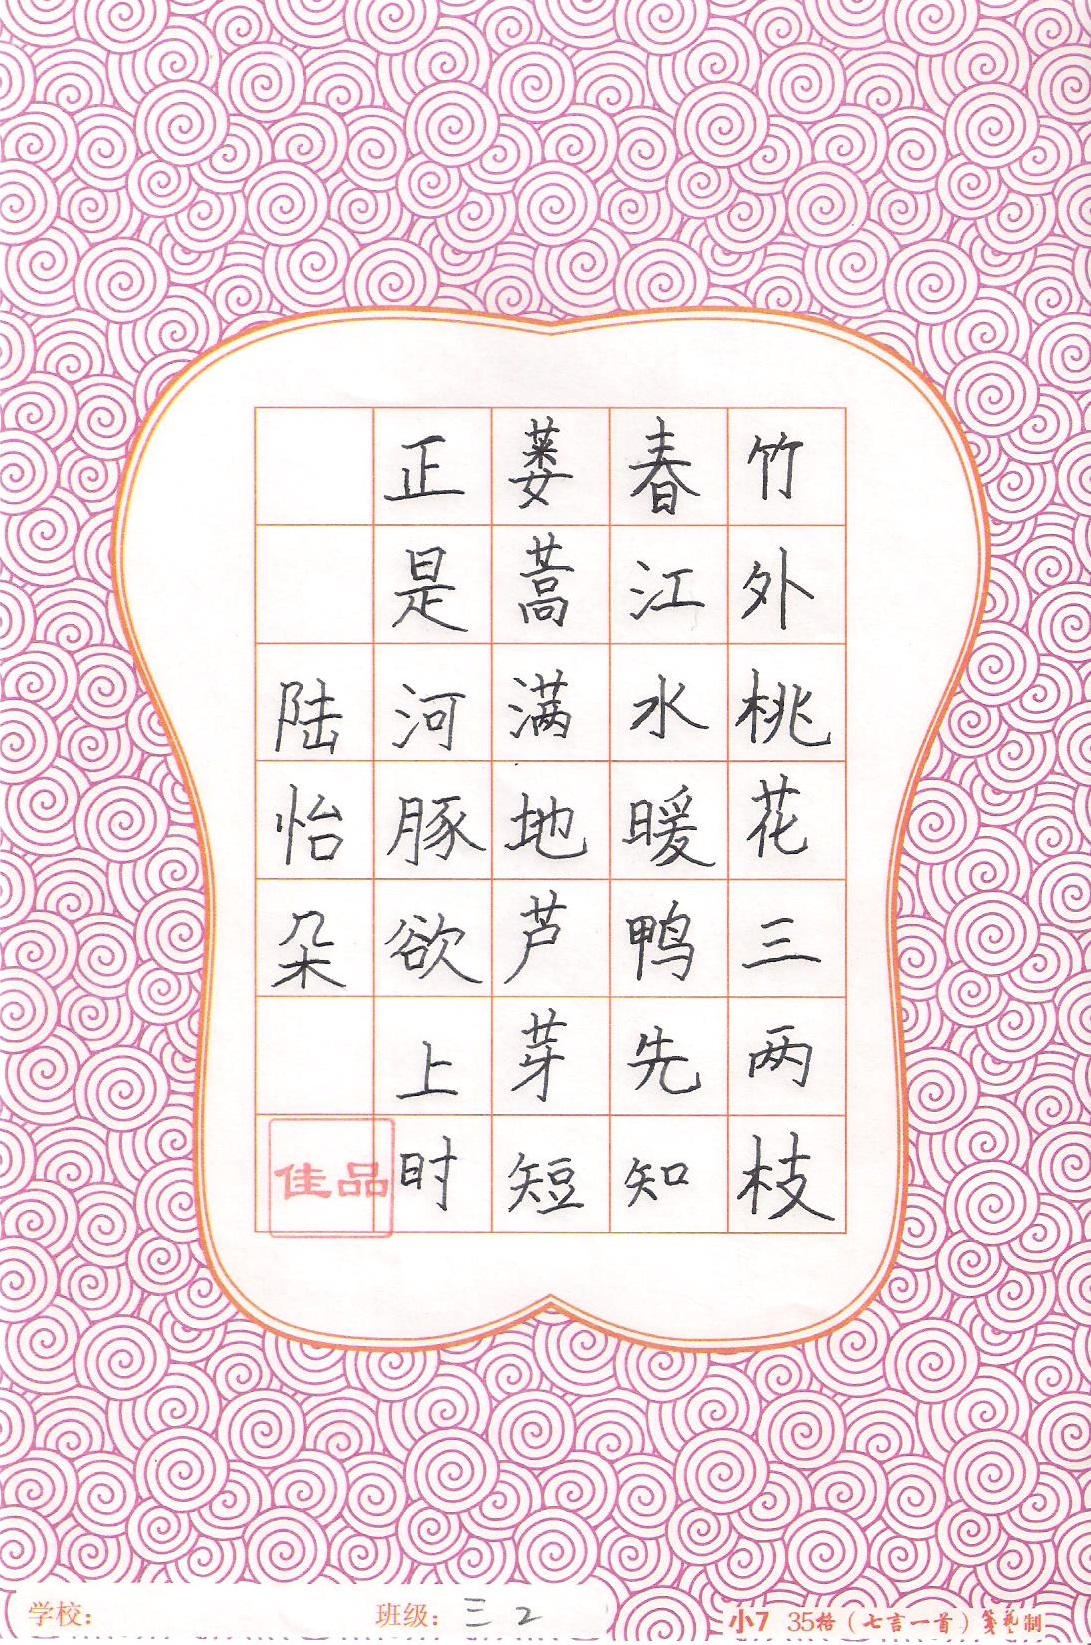 竹外桃花三两枝
春江水暖鸭先知
蒌蒿满地芦芽短
正是河豚欲上时
陆怡朵
佳品
学校：
班级：三2
小7 35格（七言一首）笺艺制